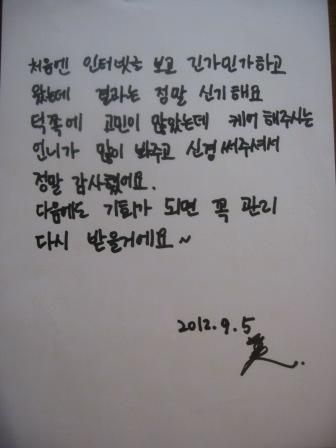 처음엔 인터넷을 보고 긴가민가하고
왔는데 결과는 정말 신기해요
턱쪽에 고민이 많았는데 케어 해주시는
언니가 많이 봐주고 신경써주셔서
정말 감사했어요.
다음에도 기회가 되면 꼭 관리
다시 받을거에요~
2012.9.5